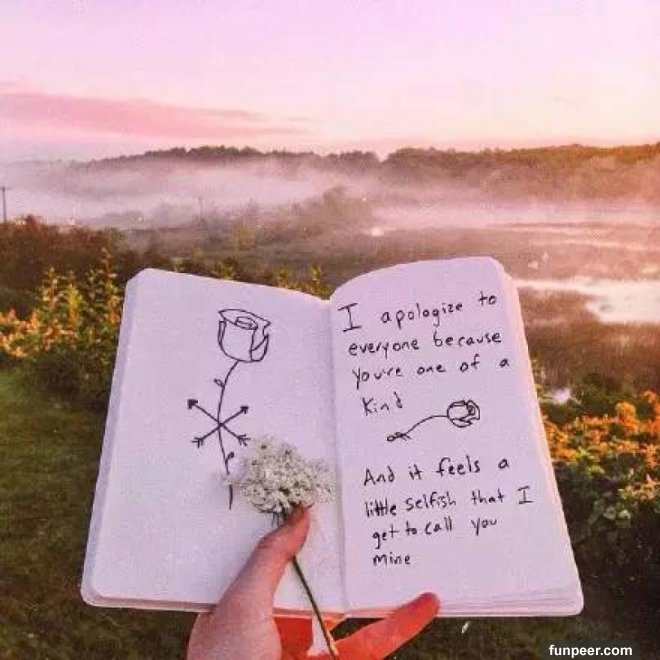 I apologize to
everyone because
you're one of a
kind
And it feels a
little selfish that I
get to call you
mine
funpeer.com